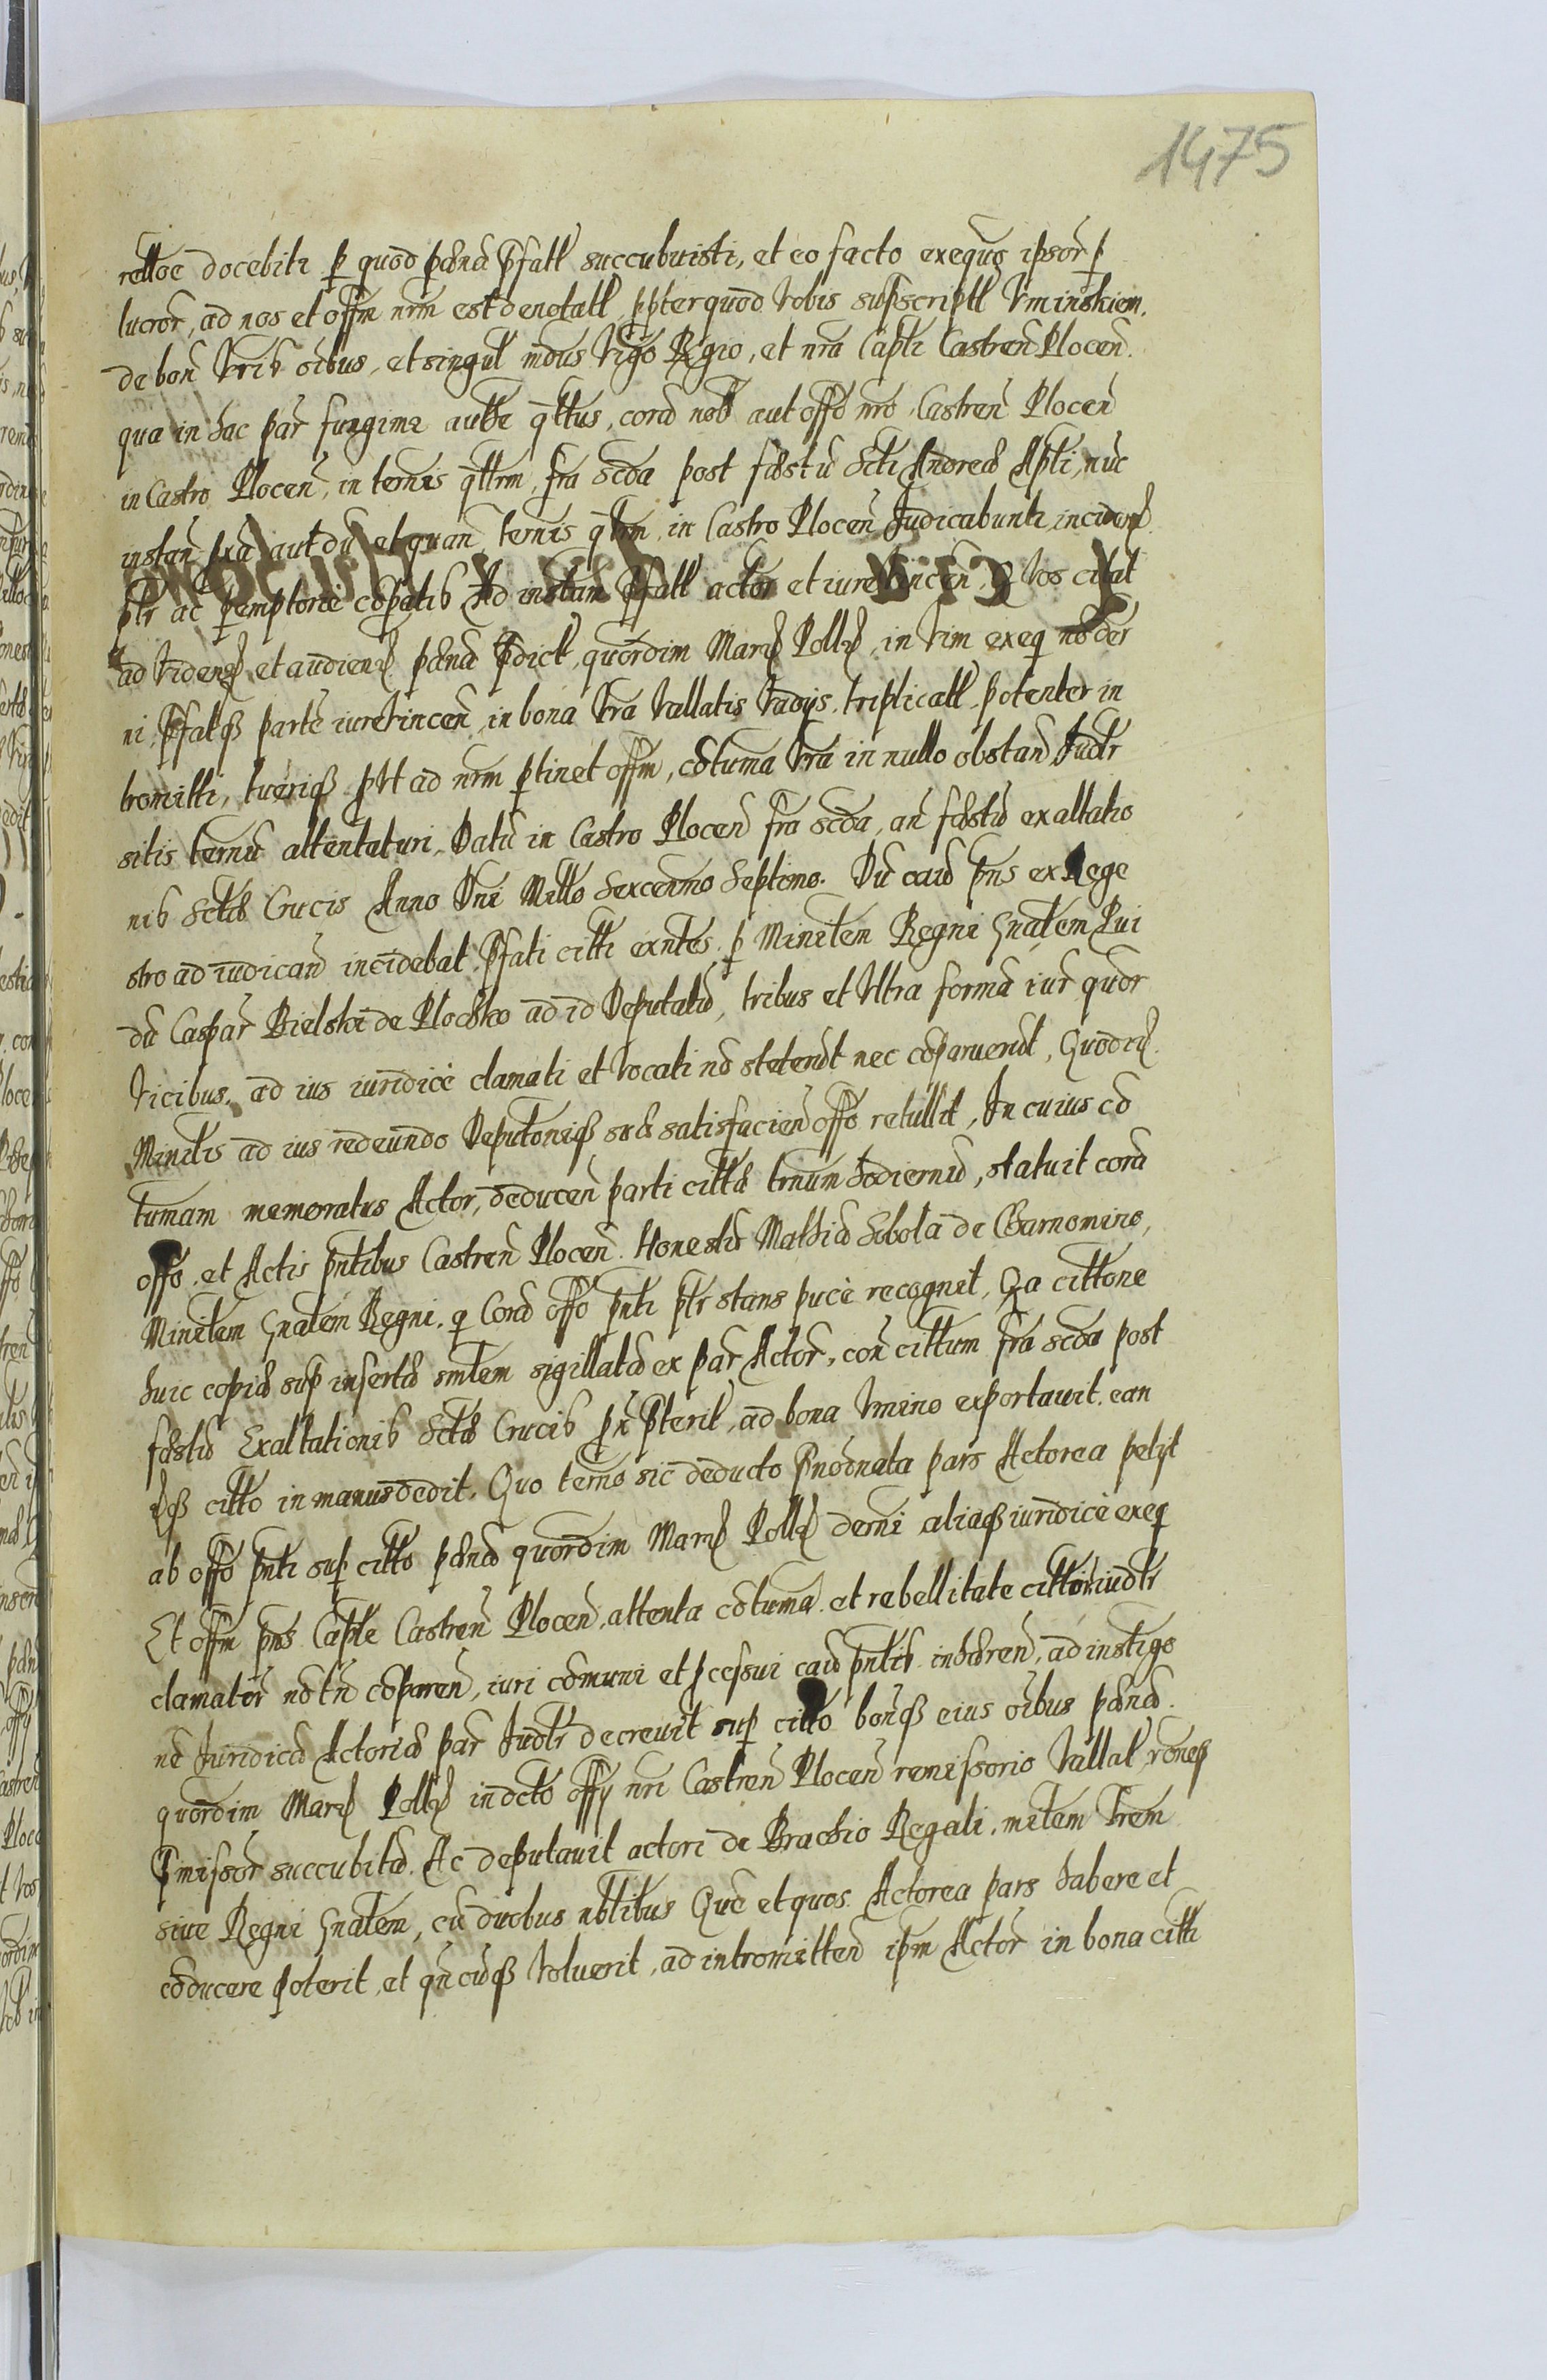 1475
relloe docebitr p quod pœnā Pfatt succubuisti, et eo facto exequo ipsor p
lucror, ad nos et offm nrm est denotatt, ppter quod Vobis supscriptt Vminskiem.
de bon Vris oibus, et singul mdus Vigo Rgio, et nra Capli Castren Plocen.
qua in hac par fungimr autte qttus, corā nob aut offo nro Castren Plocen
in Castro Plocen, in ternis qttrm, fra scda post fœstū Scti Andreæ Apli, nūc
instan pxa aut dū et quan ternis qtrm in Castro Plocen Judicabuntr inciden
ptr ac pemptorie copatis Ad instan Pfatt actor et iurevincen, Q Vos citat
ad Viden et audien pœnā Pdict, quordim Marc Poll, in Vim exeq no der
ni, Pfatq parte iurevincen in bona Vra Vallatis Vadys triplicatt potenter in
tromitti, tueriq pUt ad nrm ptinet offm, cōtuma Vra in nullo obstan Judr
sitis ternū attentaturi, Datū in Castro Plocen fra scda, an fœstū exaltatio
nis Sctæ Crucis Anno Dni Millo Sexcenmo Septimo. Dū caūs pns ex Rege
stro ad iudican incidebat, Pfati citti exntes p Mintem Regni Gnatem Pui
dū Caspar Bielski de Plochko ad id Deputatū, tribus et Ultra formā iur quor
Vicibus, ad ius iuridice clamati et Vocati nō steterūt nec coparuerūt, Quodq
Minitis ad ius redeundo Deputoniq suæ satisfacien offo retullit, In cuius cō
tumam memoratus Actor, deducen parti cittæ trnum hodiernū, statuit corā
offo, et Actis pntibus Castren Plocen. Honestū Mathiā Sobota de Charnomino,
Minitem Gnatem Regni, q Corā offo pnti ptr stans puce recognit, Qa cittone
huic copiæ sup insertā smtem sigillatā ex par Actor, con cittum fra scda post
fœstū Exaltationis Sctæ Crucis pn Pterit, ad bona Vmino exportauit, ean
dq citto in manus dedit. Quo terno sic deducto Pnodnata pars Actorea petyt
ab offo pnti sup citto pœnā quordim Marc Poll derni aliasq iuridice exeq
Et offm pns Caple Castren Plocen, attenta cōtuma et rebellitate cittor iudtr
clamator nō tn cōparen, iuri cōmuni et pcessui caūs pntis inhæren, ad instigo
nē Juridicā Actoreæ par Judtr decreuit sup citto bonq eius oibus pœnā.
quordim Marc Poll in dcto offy nri Castren Plocen remissorio Vallat, rones
Pmissor succubitā. Ac deputauit actori de Brachio Regali, mitem Vrem
siue Regni Gnatem, cū duobus nbtibus Que et quos Actorea pars habere et
cōducere poterit, et qn cūq Voluerit, ad intromitten ipm Actor in bona citti